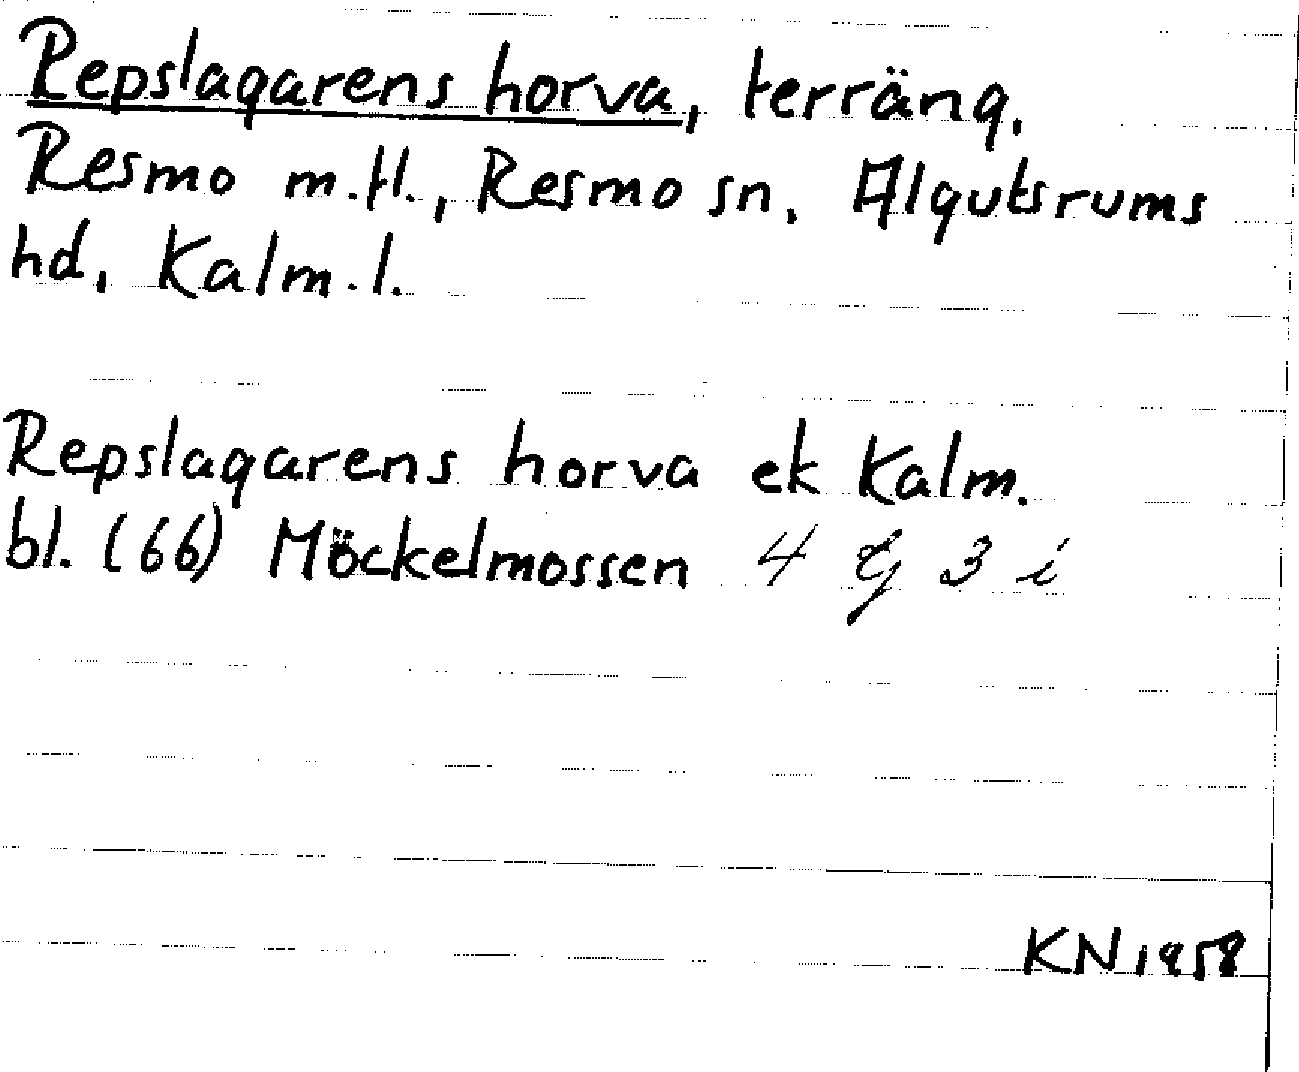 Repslagarens horva, terräng.
Resmo m.fl., Resmo sn. Algutsrums
hd, Kalm.l.
Repslagarens horva ek Kalm.
bl. (66) Möckelmossen 4 G 3 i
KN 1958